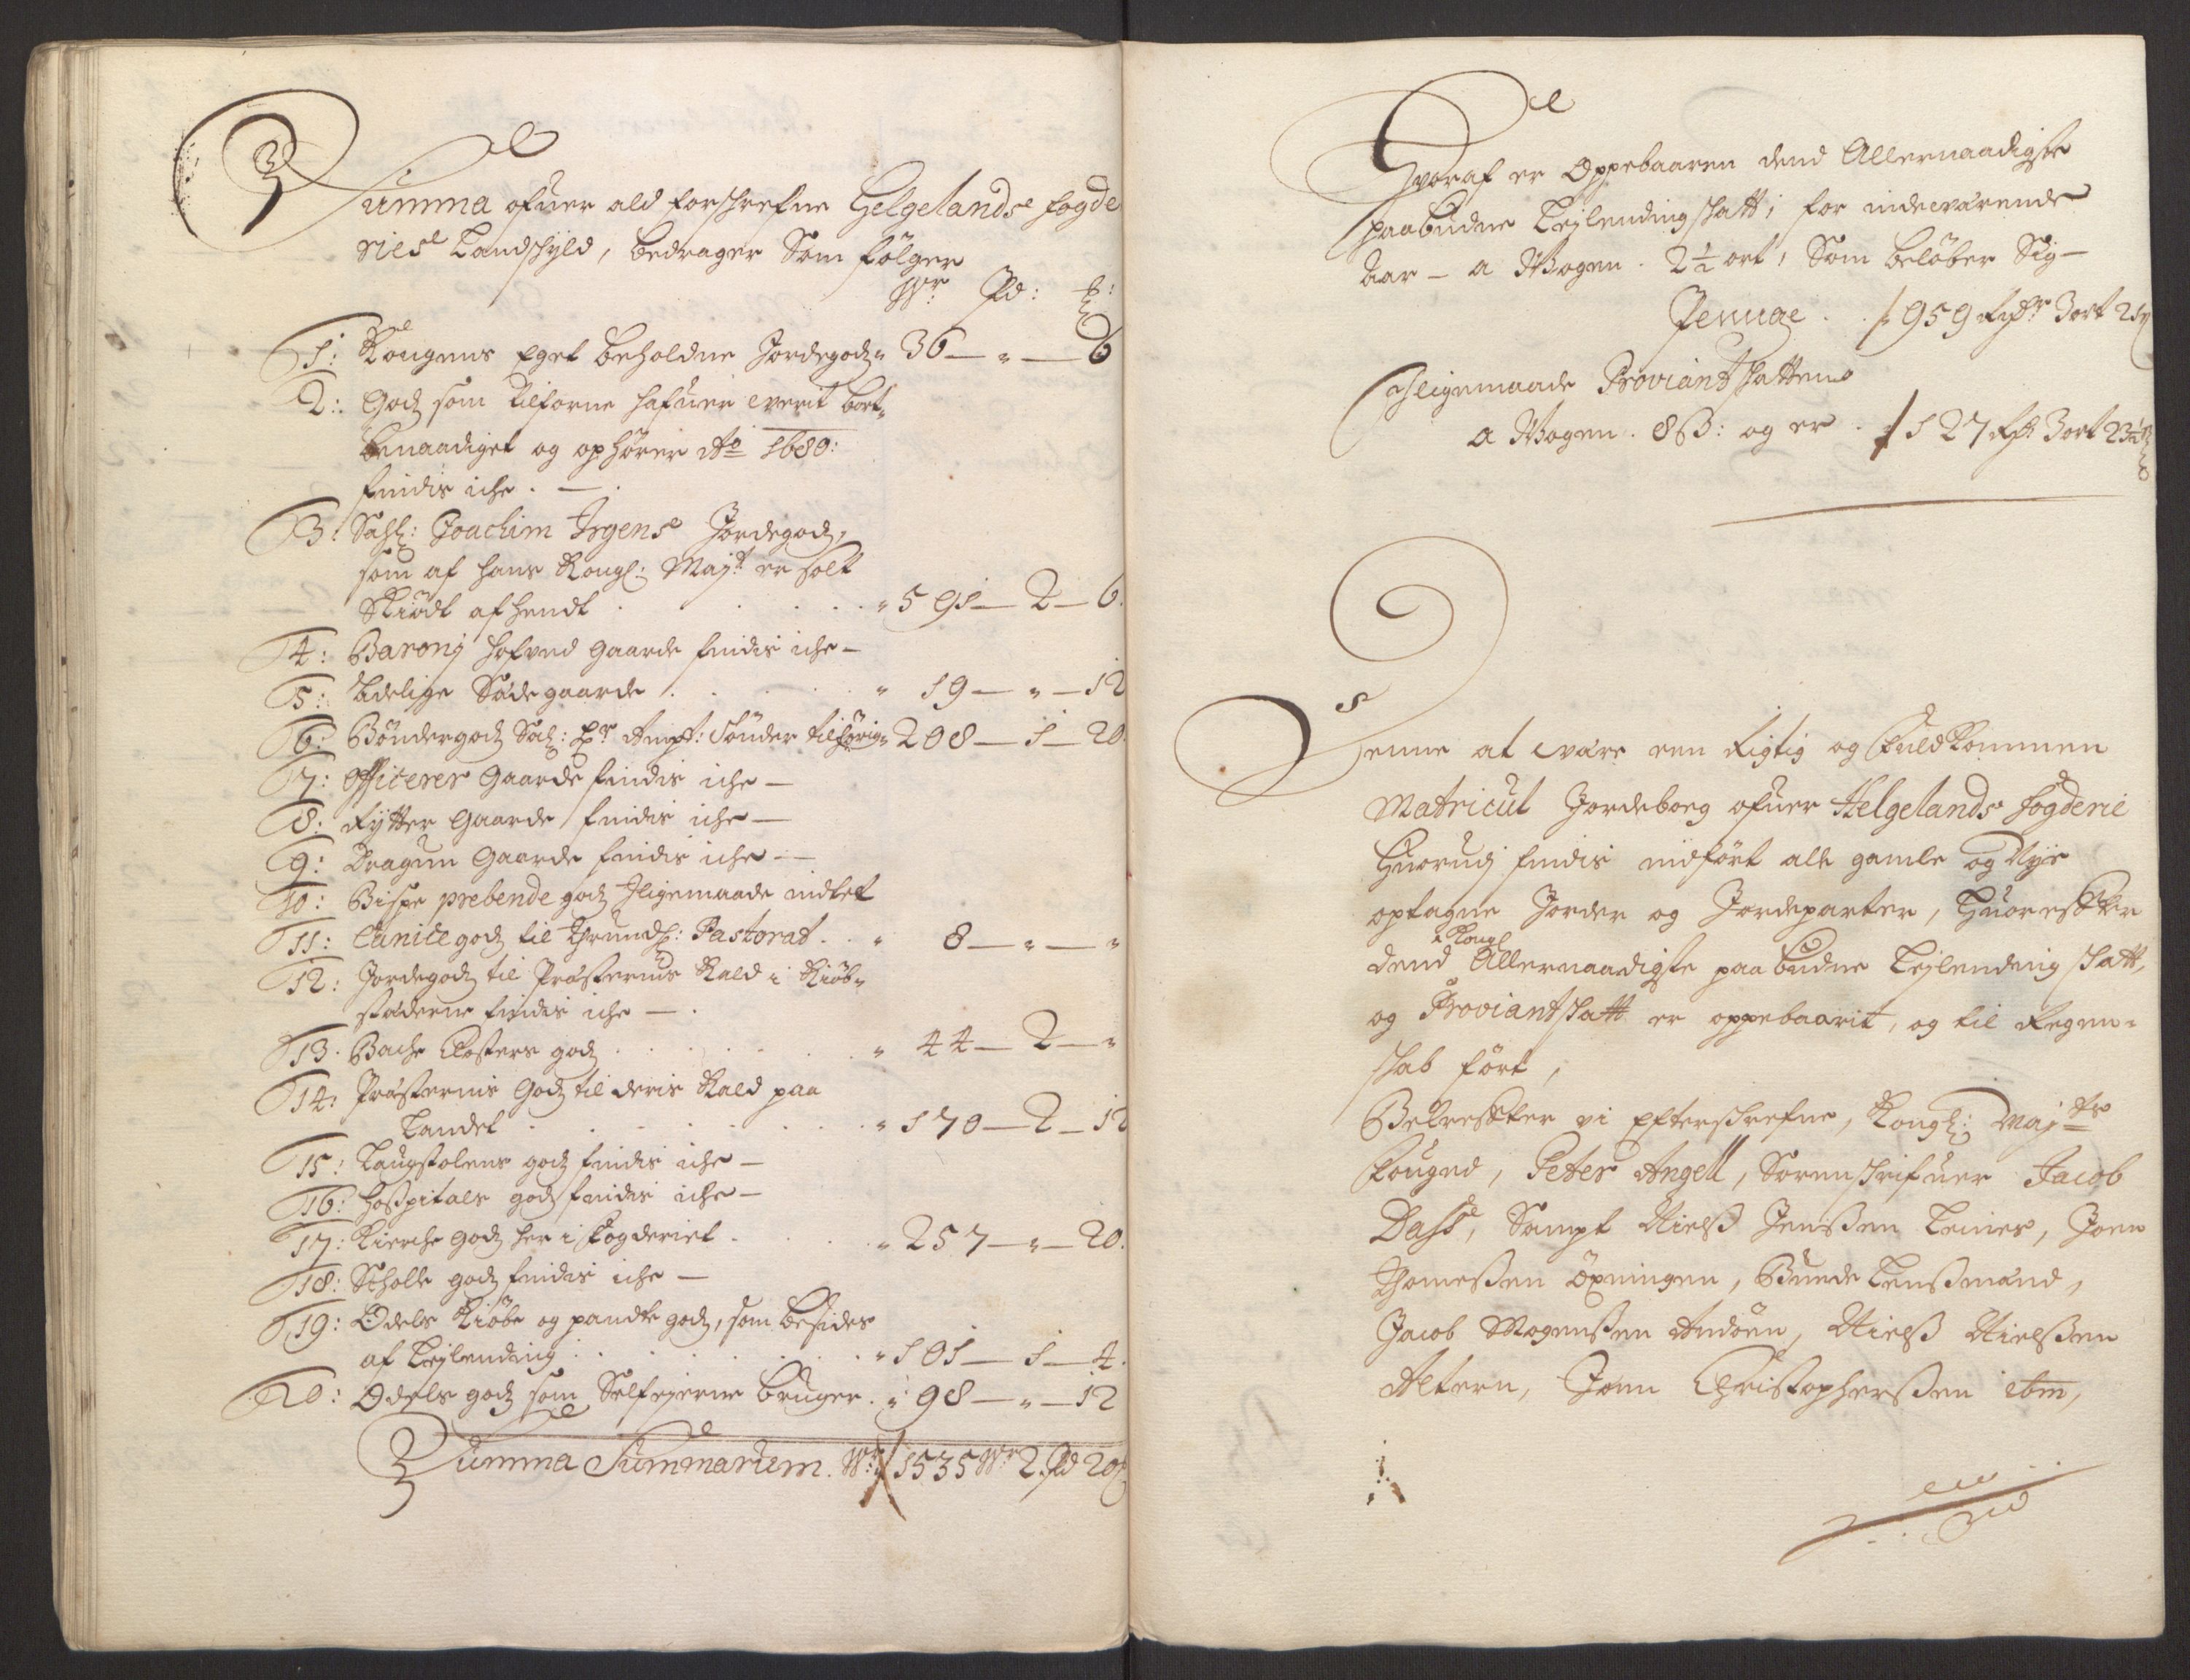 Summa ofuer ald forschrefne Helgelands fogde
ries Landschyld, bedrager Som fölger
Wr: Pd: ℔:
1: Kongens Eget beholdne Jordegodz " 36 — " — 6
2: Godz som tilforne hafuer werit bort-
benaadiget og ophörer Ao 1680:
findis iche . — .
3: Sahl: Joachim Irgens Jordegodz,
som af hans Kongl: Mayt er solt
Skiödt afhendt . . . . " 591 — 2 — 6.
4: Baronj hofved gaarde findis iche —
5: Adelige Sädegaarde . . . " 19 — " — 12
6: Böndergodz Sal: Hr Ampt: Sönder tilhörig " 208 — 1 — 20.
7: Officerer Gaarde findis iche —
8: Rytter Gaarde findis iche —
9: Dragun Gaarde findis iche —
10: Bispe prebende godz Iligemaade indtet
11: Canicegodz til Thrundh: Pastorat . . " 8 — " — "
12: Jordegodz til Præsternis Kald i Kiöb-
städerne findis iche — .
13. Bache Closters godz . . . . " 44 — 2 — "
14: Præsternis Godz til deris Kald paa
Landet . . . . . " 170 — 2 — 12
15: Laugstolens godz findis iche —
16: Hospitals godz findis iche —
17: Kierche godz her i fogderiet . . . " 257 — " — 20.
18: Scholle godz findis iche —
19: Odels Kiöbe og pandte godz, som besides
af Leylending . . . . . " 101 — 1 — 4.
20: Odels godz som Selfejerne bruger . " 98 — " — 12
Summa Summarum. Wr 1535 Wr 2 Pd 20
Hvoraf er Oppebaaren dend Allernaadigste
paabudne Leylending schatt, for indeværende
Aar — a Wogen . 2½ ort, Som belöber Sig —
Penge . . 959 Rdr 3 ort 21
Iligemaade Proviant schatten
a Wogen . 8 ß: og er . 127 Rdr 3 ort 23
Denne at være een Rigtig og Fuldkommen
Matricul Jordebog ofuer Helgelands fogderie
Huorudj findis indfört alle gamle og Nye
optagne Jorder og Jordeparter, Huoreffter
dend Kongl Allernaadigste paabudne Leylending schatt,
og Proviant schatt er oppebaarit, og til Regen-
schab fört,
Bekreffter vi Efterschrefne, Kongl: Mayts
Fougud, Peter Angell, Sorenschrifuer Jacob
Dass, Sampt Nielß Jenßen Leines, Joen
Thomeßen Öxningen, Bunde Lensmænd,
Jacob Mogenßen Andöen, Nielß Nielßen
Altern, Joen Christopherßen ibm,